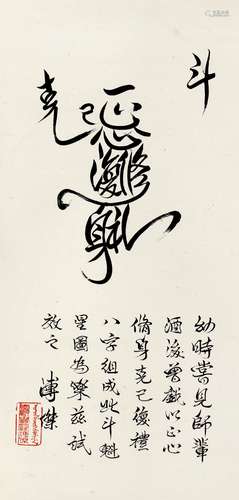 斗
正心修身克己復禮
幼時嘗見師輩
酒後曾戲以正心
脩身克己復禮
八字組成此斗魁
星圖為樂茲試
效之 溥傑